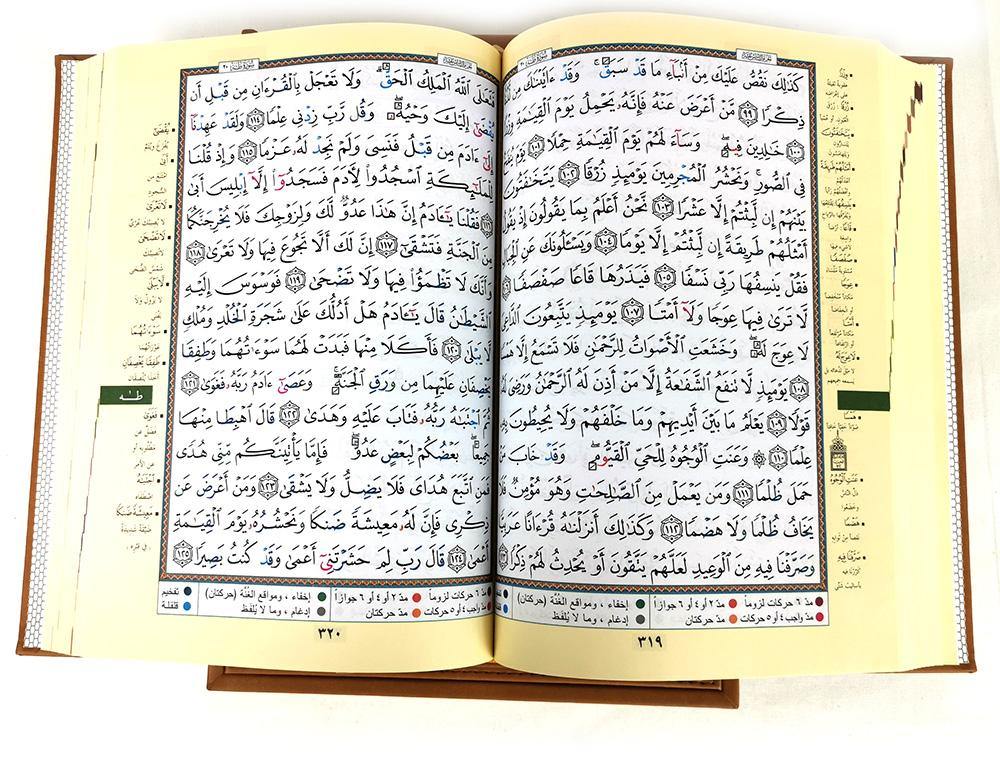 كَذَٰلِكَ نَقُصُّ عَلَيْكَ مِنْ أَنۢبَآءِ مَا قَدْ سَبَقَ ۚ وَقَدْ ءَاتَيْنَٰكَ مِن
ذِكْرًا ٩٩ مَّنْ أَعْرَضَ عَنْهُ فَإِنَّهُۥ يَحْمِلُ يَوْمَ ٱلْقِيَٰمَةِ
١٠٠ خَٰلِدِينَ فِيهِ ۖ وَسَآءَ لَهُمْ يَوْمَ ٱلْقِيَٰمَةِ حِمْلًا ١٠١ يَوْمَ
فِى ٱلصُّورِ ۚ وَنَحْشُرُ ٱلْمُجْرِمِينَ يَوْمَئِذٍ زُرْقًا ١٠٢ يَتَخَٰفَتُونَ
بَيْنَهُمْ إِن لَّبِثْتُمْ إِلَّا عَشْرًا ١٠٣ نَّحْنُ أَعْلَمُ بِمَا يَقُولُونَ إِذْ يَقُولُ
أَمْثَلُهُمْ طَرِيقَةً إِن لَّبِثْتُمْ إِلَّا يَوْمًا ١٠٤ وَيَسْـَٔلُونَكَ عَنِ
فَقُلْ يَنسِفُهَا رَبِّى نَسْفًا ١٠٥ فَيَذَرُهَا قَاعًا صَفْصَفًا
لَّا تَرَىٰ فِيهَا عِوَجًا وَلَآ أَمْتًا ١٠٧ يَوْمَئِذٍ يَتَّبِعُونَ
لَا عِوَجَ لَهُۥ ۖ وَخَشَعَتِ ٱلْأَصْوَاتُ لِلرَّحْمَٰنِ فَلَا تَسْمَعُ إِلَّا
١٠٨ يَوْمَئِذٍ لَّا تَنفَعُ ٱلشَّفَٰعَةُ إِلَّا مَنْ أَذِنَ لَهُ ٱلرَّحْمَٰنُ وَرَضِىَ
قَوْلًا ١٠٩ يَعْلَمُ مَا بَيْنَ أَيْدِيهِمْ وَمَا خَلْفَهُمْ وَلَا يُحِيطُونَ
عِلْمًا ١١٠ ۞ وَعَنَتِ ٱلْوُجُوهُ لِلْحَىِّ ٱلْقَيُّومِ ۖ وَقَدْ خَابَ مَنْ
حَمَلَ ظُلْمًا ١١١ وَمَن يَعْمَلْ مِنَ ٱلصَّٰلِحَٰتِ وَهُوَ مُؤْمِنٌ فَلَا
يَخَافُ ظُلْمًا وَلَا هَضْمًا ١١٢ وَكَذَٰلِكَ أَنزَلْنَٰهُ قُرْءَانًا عَرَبِيًّا
وَصَرَّفْنَا فِيهِ مِنَ ٱلْوَعِيدِ لَعَلَّهُمْ يَتَّقُونَ أَوْ يُحْدِثُ لَهُمْ ذِكْرًا
مدّ ٦ حركات لزوماً مدّ ٢ أو ٤ أو ٦ جوازاً إخفاء ، ومواقع الغُنّة (حركتان)
مدّ واجب ٤ أو ٥ حركات مدّ حركتان إدغام ، وما لا يُلفظ
٣١٩
فَتَعَٰلَى ٱللَّهُ ٱلْمَلِكُ ٱلْحَقُّ ۗ وَلَا تَعْجَلْ بِٱلْقُرْءَانِ مِن قَبْلِ أَن
يُقْضَىٰٓ إِلَيْكَ وَحْيُهُۥ ۖ وَقُل رَّبِّ زِدْنِى عِلْمًا ١١٤ وَلَقَدْ عَهِدْنَآ
إِلَىٰٓ ءَادَمَ مِن قَبْلُ فَنَسِىَ وَلَمْ نَجِدْ لَهُۥ عَزْمًا ١١٥ وَإِذْ قُلْنَا
لِلْمَلَٰٓئِكَةِ ٱسْجُدُوا۟ لِـَٔادَمَ فَسَجَدُوٓا۟ إِلَّآ إِبْلِيسَ أَبَىٰ
١١٦ فَقُلْنَا يَٰٓـَٔادَمُ إِنَّ هَٰذَا عَدُوٌّ لَّكَ وَلِزَوْجِكَ فَلَا يُخْرِجَنَّكُمَا
مِنَ ٱلْجَنَّةِ فَتَشْقَىٰٓ ١١٧ إِنَّ لَكَ أَلَّا تَجُوعَ فِيهَا وَلَا تَعْرَىٰ ١١٨
وَأَنَّكَ لَا تَظْمَؤُا۟ فِيهَا وَلَا تَضْحَىٰ ١١٩ فَوَسْوَسَ إِلَيْهِ
ٱلشَّيْطَٰنُ قَالَ يَٰٓـَٔادَمُ هَلْ أَدُلُّكَ عَلَىٰ شَجَرَةِ ٱلْخُلْدِ وَمُلْكٍ
لَّا يَبْلَىٰ ١٢٠ فَأَكَلَا مِنْهَا فَبَدَتْ لَهُمَا سَوْءَٰتُهُمَا وَطَفِقَا
يَخْصِفَانِ عَلَيْهِمَا مِن وَرَقِ ٱلْجَنَّةِ ۚ وَعَصَىٰٓ ءَادَمُ رَبَّهُۥ فَغَوَىٰ ١٢١
ثُمَّ ٱجْتَبَٰهُ رَبُّهُۥ فَتَابَ عَلَيْهِ وَهَدَىٰ ١٢٢ قَالَ ٱهْبِطَا مِنْهَا
جَمِيعًۢا ۖ بَعْضُكُمْ لِبَعْضٍ عَدُوٌّ ۖ فَإِمَّا يَأْتِيَنَّكُم مِّنِّى هُدًى
فَمَنِ ٱتَّبَعَ هُدَاىَ فَلَا يَضِلُّ وَلَا يَشْقَىٰ ١٢٣ وَمَنْ أَعْرَضَ عَن
ذِكْرِى فَإِنَّ لَهُۥ مَعِيشَةً ضَنكًا وَنَحْشُرُهُۥ يَوْمَ ٱلْقِيَٰمَةِ
أَعْمَىٰ ١٢٤ قَالَ رَبِّ لِمَ حَشَرْتَنِىٓ أَعْمَىٰ وَقَدْ كُنتُ بَصِيرًا ١٢٥
مدّ ٦ حركات لزوماً مدّ ٢ أو ٤ أو ٦ جوازاً إخفاء ، ومواقع الغُنّة (حركتان) تفخيم
مدّ واجب ٤ أو ٥ حركات مدّ حركتان إدغام ، وما لا يُلفظ قلقلة
٣٢٠
طـٰـه